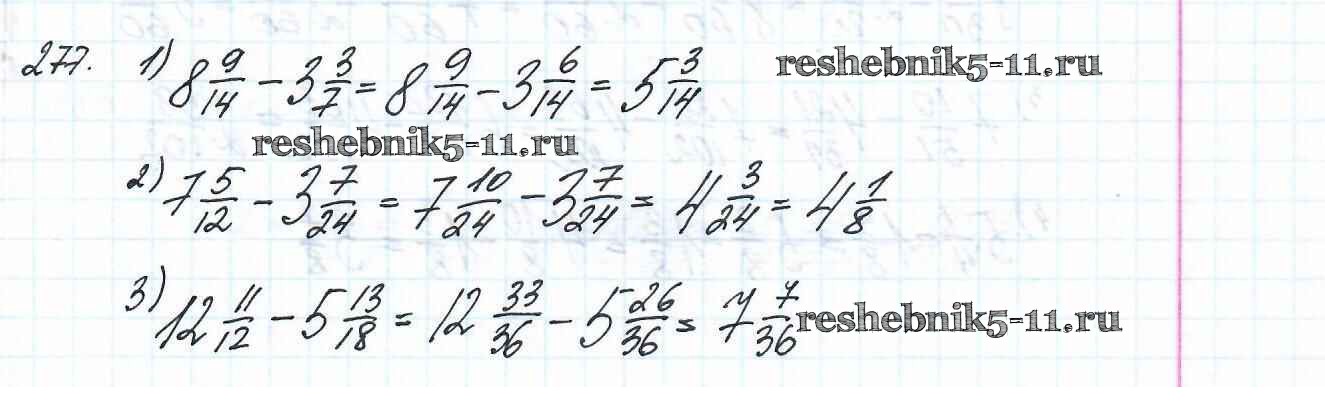 277. 1) 8 9/14 - 3 3/7 = 8 9/14 - 3 6/14 = 5 3/14 reshebnik5-11.ru
reshebnik5-11.ru
2) 7 5/12 - 3 7/24 = 7 10/24 - 3 7/24 = 4 3/24 = 4 1/8
3) 12 11/12 - 5 13/18 = 12 33/36 - 5 26/36 = 7 7/36 reshebnik5-11.ru